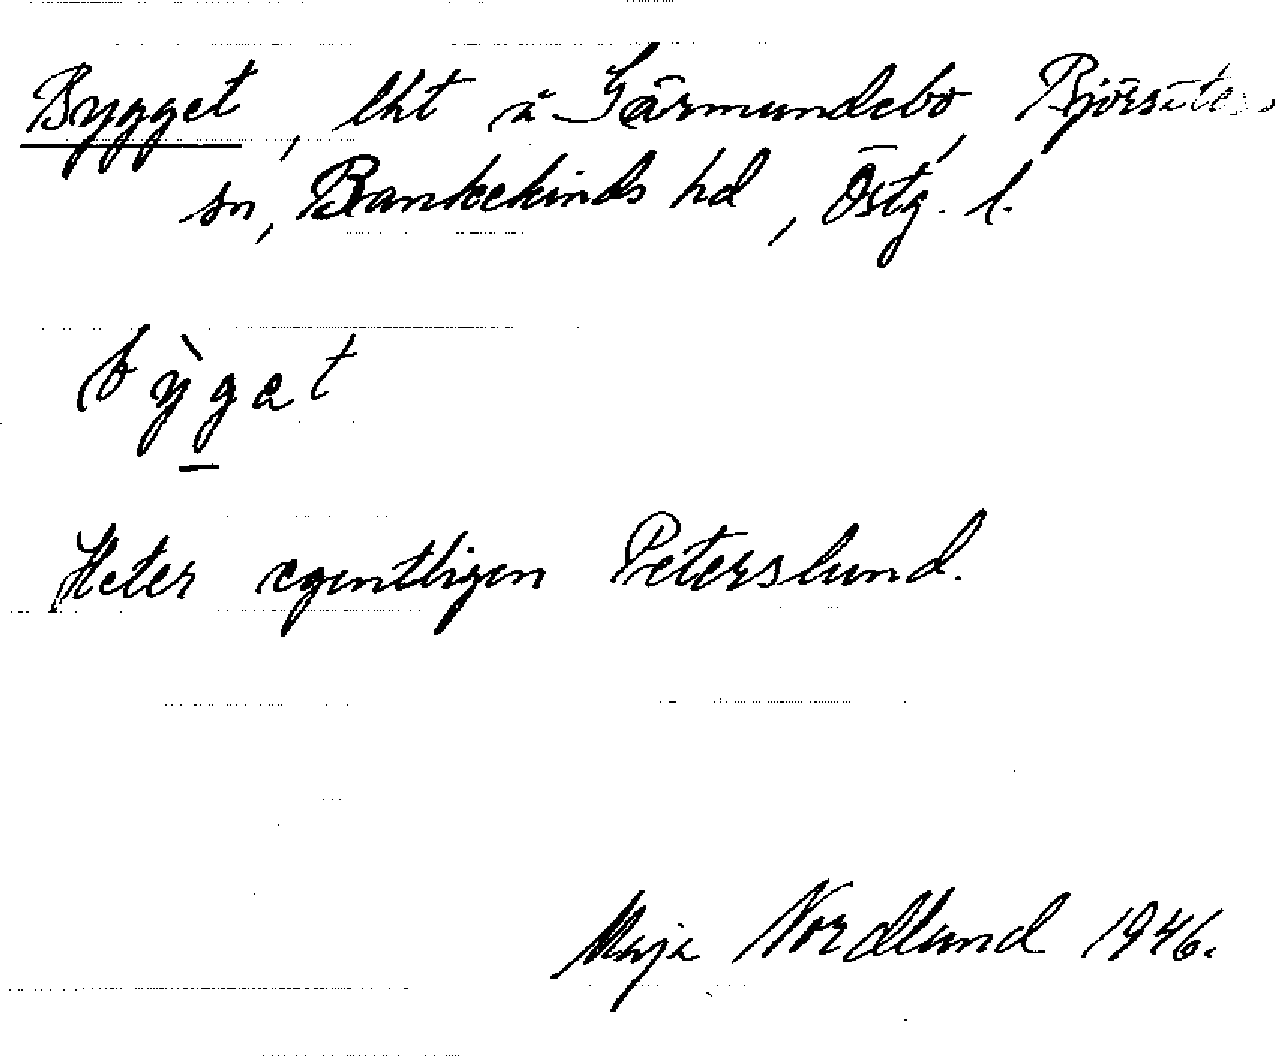 Bygget, lht å Särmundebo, Björsäters
sn, Bankekinds hd, Östg. l.
bỳgat
Heter egentligen Peterslund.
Maja Nordlund 1946.